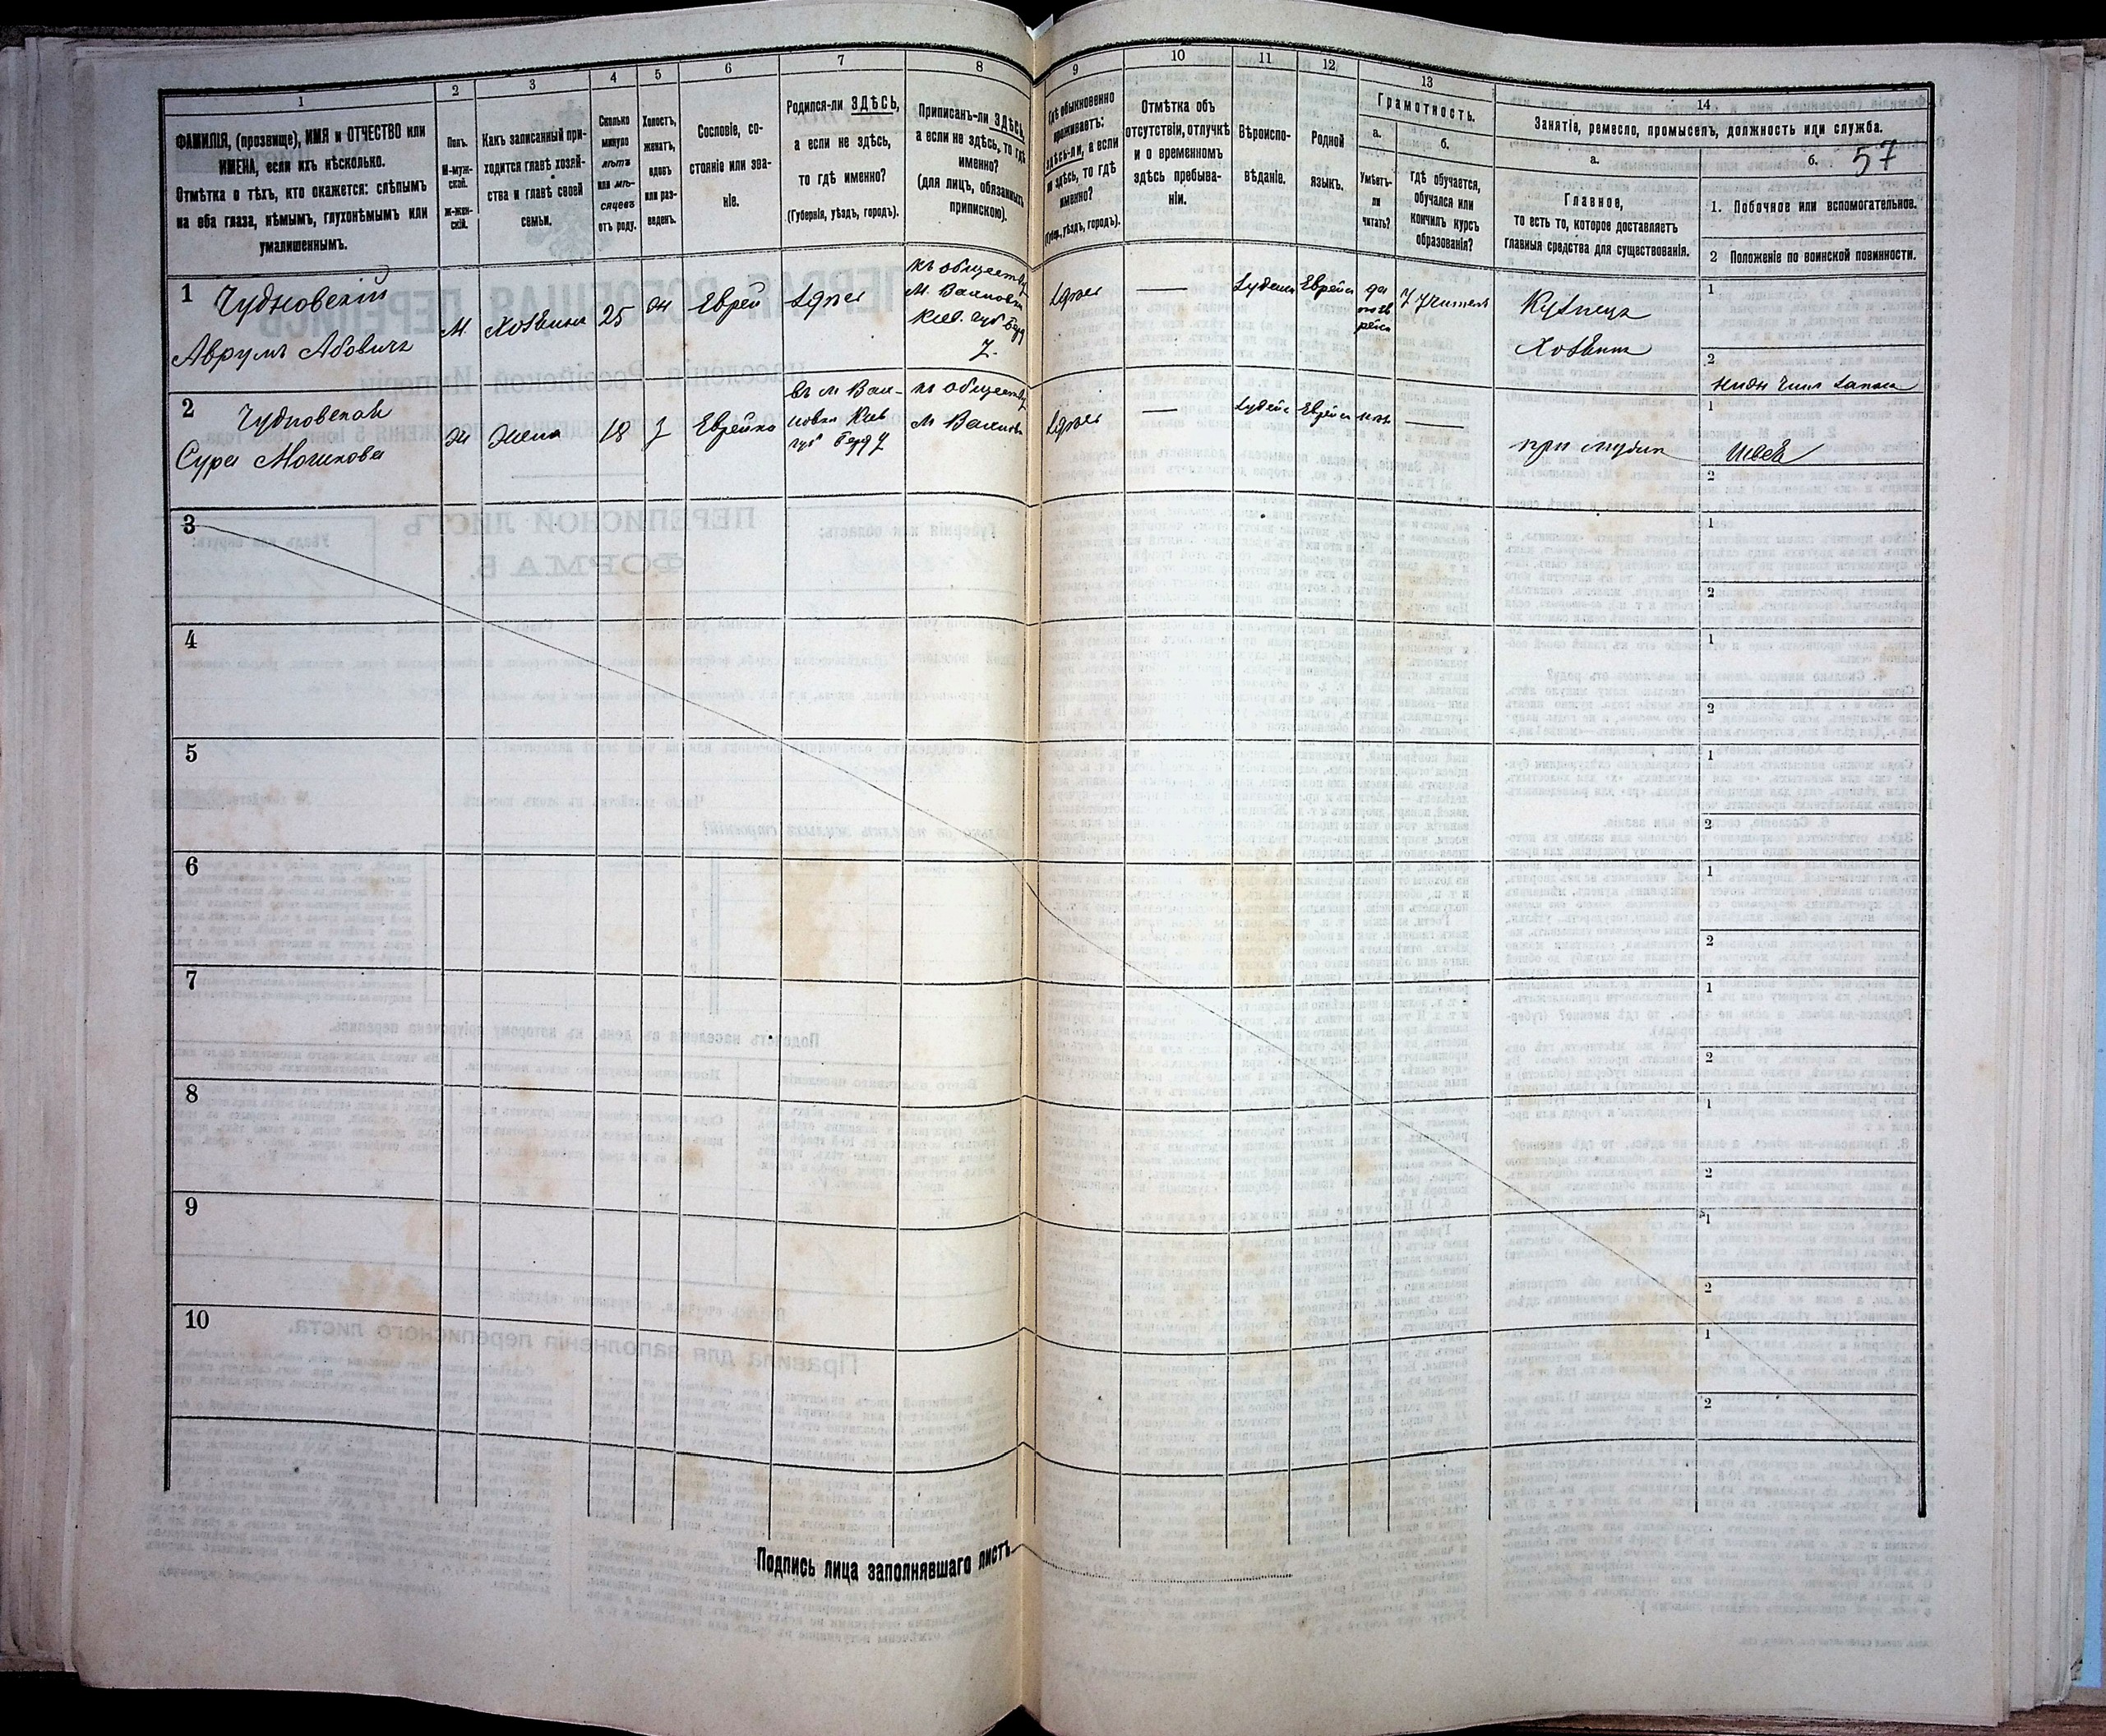 1
2
3
4
5
6
7
8
9
10
11
12
13
14
ФАМИЛІЯ, (прозвище), ИМЯ и ОТЧЕСТВО или
ИМЕНА, если ихъ нѣсколько.
Отмѣтка о тѣхъ, кто окажется: слѣпымъ
на оба глаза, нѣмымъ, глухонѣмымъ или
умалишеннымъ.
Полъ.
М-муж-
ской.
Ж-жен-
скій.
Какъ записанный при-
ходится главѣ хозяй-
ства и главѣ своей
семьи.
Сколько
минуло
лѣтъ
или мѣ-
сяцевъ
отъ роду.
Холостъ,
женатъ,
вдовъ
или раз-
веденъ.
Сословіе, со-
стояніе или зва-
ніе.
Родился-ли ЗДѢСЬ,
а если не здѣсь,
то гдѣ именно?
(Губернія, уѣздъ, городъ).
Приписанъ-ли ЗДѢСЬ,
а если не здѣсь, то гдѣ
именно?
(для лицъ, обязанныхъ
припискою).
Гдѣ обыкновенно
проживаетъ:
здѣсь-ли, а если
не здѣсь, то гдѣ
именно?
(Губерн., уѣздъ, городъ).
Отмѣтка объ
отсутствіи, отлучкѣ
и о временномъ
здѣсь пребыва-
ніи.
Вѣроиспо-
вѣданіе.
Родной
языкъ.
Грамотность.
а.
б.
Умѣетъ-
ли
читать?
гдѣ обучается,
обучался или
кончилъ курсъ
образованія?
Занятіе, ремесло, промыселъ, должность или служба.
а.
б.
57
Главное,
то есть то, которое доставляетъ
главныя средства для существованія.
1. Побочное или вспомогательное.
2 Положеніе по воинской повинности.
1 Чудновскій
Аврумъ Абовичъ
М
Хозяинъ
25
ж
Еврей
Здѣсь
къ обществу
Здѣсь
—
Іудейск
Еврейск
да
У Учителя
Кузнецъ
Хозяинъ
1
2
2 Чудновская
Сура Мошкова
Ж
Жена
18
З
Еврейка
къ обществу
Здѣсь
—
Іудейс
Еврейск
нѣтъ
—
при мужѣ
1
Швея
2
3
1
2
4
1
2
5
1
2
6
1
2
7
1
2
8
1
2
9
1
2
10
1
2
Подпись лица заполнявшаго листъ